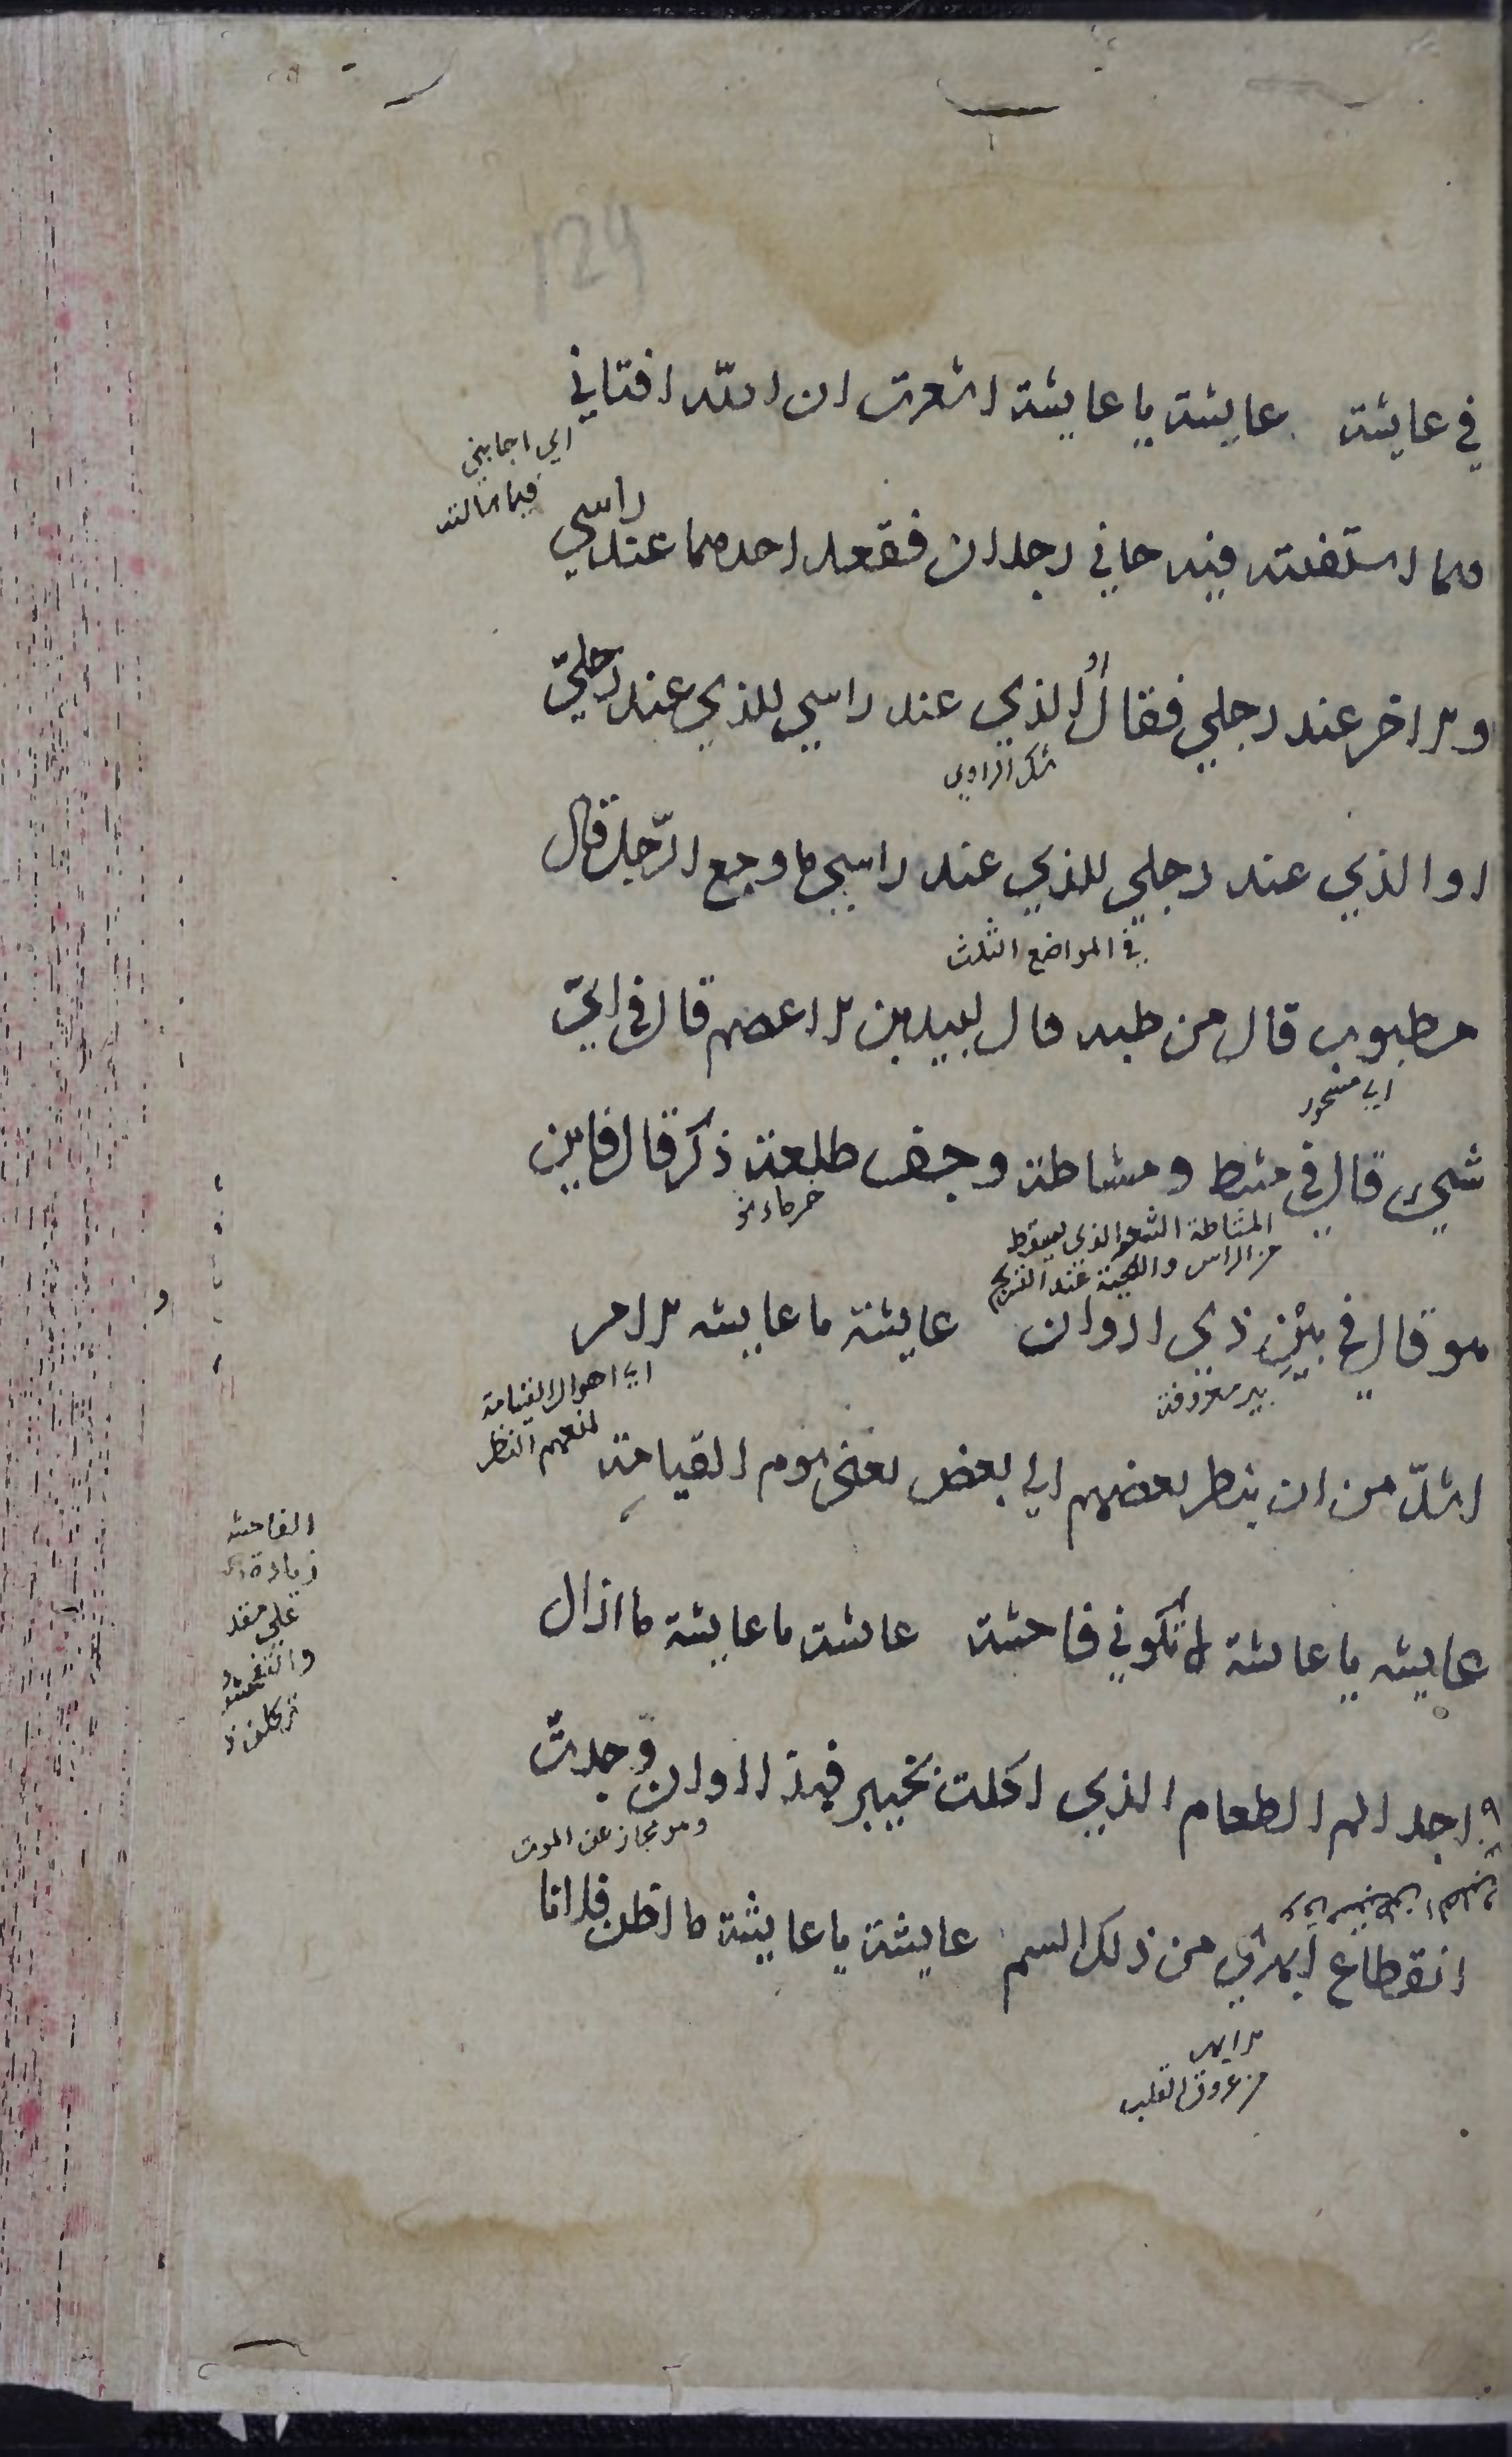 124
في عايشة عايشة يا عايشة اشعرت ان الله افتاني
اي اجابني
فيما سالته
فيما استفتيته فيه جاني رجلان فقعد احدهما عند راسي
والاخر عند رجلي فقال الذي عند راسي للذي عند رجلي
شك الراوي
او الذي عند رجلي للذي عند راسي ما وجع الرجل قال
في المواضع الثلث
مطبوب قال من طبه قال لبيد بن الاعصم قال في اي
اي مسحور
شيء قال في مشط ومشاطة وجف طلعة ذكر قال فاين
المشاطة الشعر الذي يسقط
من الراس واللحية عند التسريح
هو قال في بئر ذي اروان عايشة يا عايشه الامر
بير معروفة
اي اهوال القيامة
تمنعهم النظر
اشد من ان ينظر بعضهم الى بعض يعني يوم القيامة
عايشه يا عايشة لا تكوني فاحشة عايشة يا عايشة ما ازال
الفاحشه
زيادة
على
اجد الم الطعام الذي اكلت بخيبر فهذا اوان وجدت
وهو مجاز عن الموت
انقطاع ابهري من ذلك السم عايشة يا عايشة ما اظن فلانا
الابهر
من عروق القلب